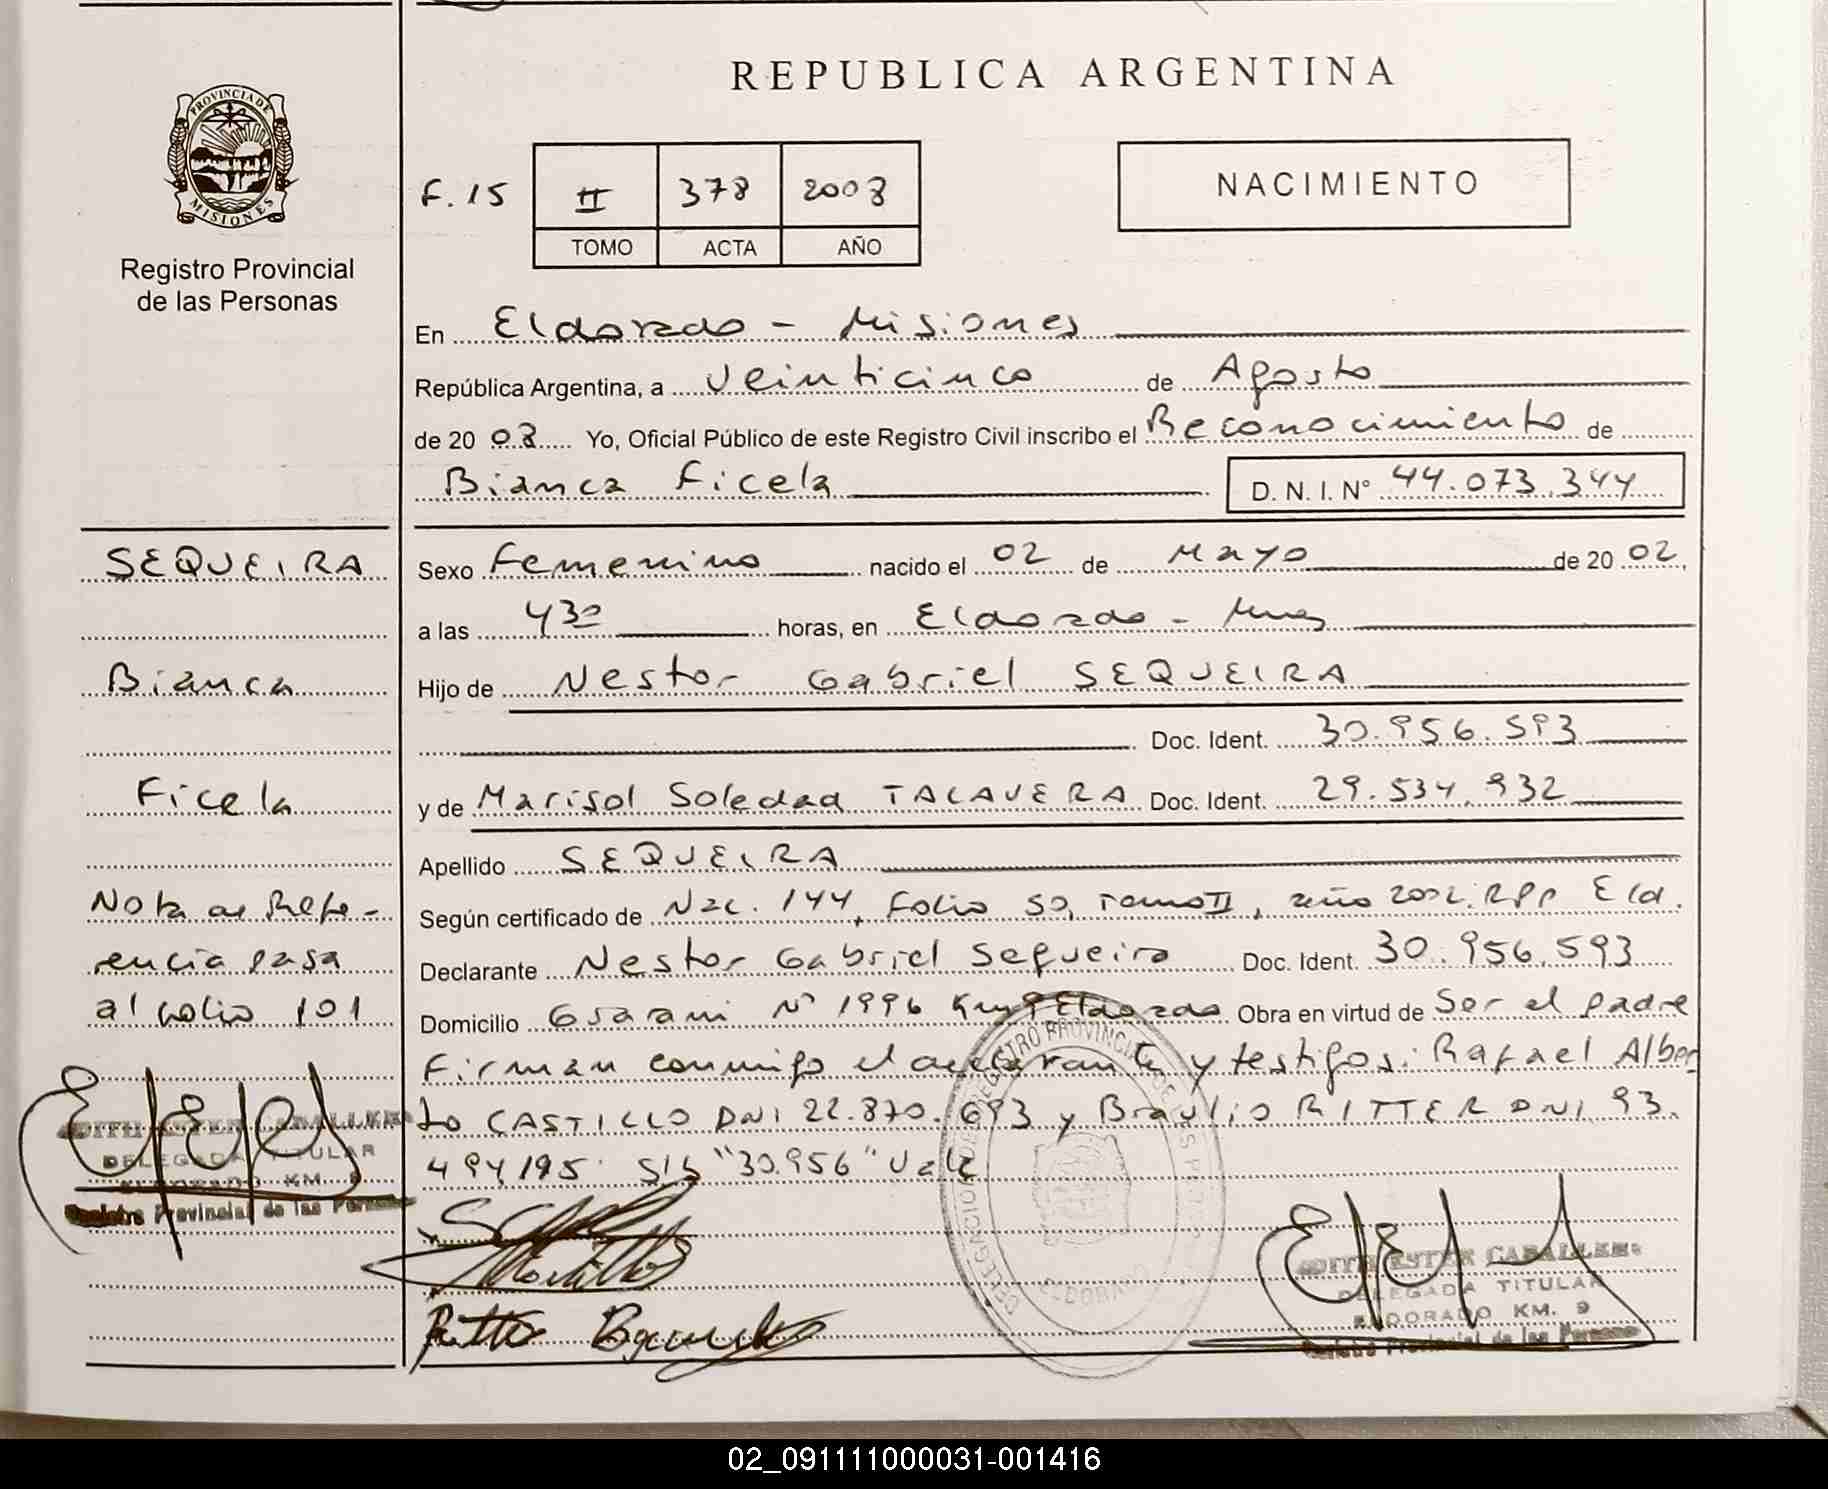 REPUBLICA ARGENTINA
PROVINCIA DE
MISIONES
Registro Provincial
de las Personas
F. 15
II 378 2008
TOMO ACTA AÑO
NACIMIENTO
En Eldorado - Misiones
República Argentina, a veinticinco de Agosto
de 20 08 Yo, Oficial Público de este Registro Civil inscribo el Reconocimiento de
Bianca Ficela D. N. I. N° 44.073.344
SEQUEIRA
Bianca
Ficela
Nota de Refe-
rencia pasa
al folio 101
Sexo Femenino nacido el 02 de Mayo de 20 02
a las 430 horas, en Eldorado - Mnes
Hijo de Nestor Gabriel SEQUEIRA
Doc. Ident. 30.956.593
y de Marisol Soledad TALAVERA Doc. Ident. 29.534.932
Apellido SEQUEIRA
Según certificado de Nac. 144, Folio 50, Tomo II, año 2002. RPP Eld.
Declarante Nestor Gabriel Sequeira Doc. Ident. 30.956.593
Domicilio Guarani N° 1996 Km 9 Eldorado Obra en virtud de Ser el padre
Firman conmigo el declarante y testigos: Rafael Alber
to CASTILLO DNI 22.870.693 y Braulio RITTER DNI 93.
494195. S/b "30.956" Vale
EDITH ESTER CABALLERO
DELEGADA TITULAR
ELDORADO KM. 9
Registro Provincial de las Personas
EDITH ESTER CABALLERO
DELEGADA TITULAR
ELDORADO KM. 9
Registro Provincial de las Personas
02_091111000031-001416